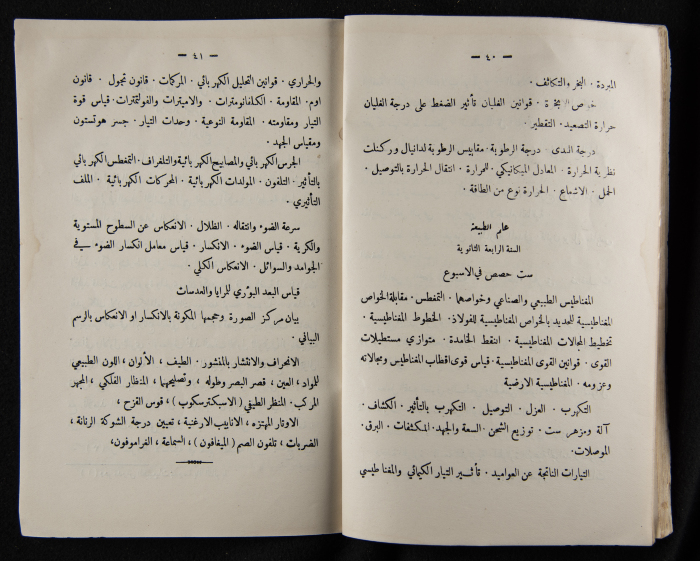 — ٤٠ —
المبردة · البخر والتكاثف ·
خواص الابخرة · قوانين الغليان تأثير الضغط على درجة الغليان
حرارة التصعيد · التقطير ·
درجة الندى · درجة الرطوبة · مقاييس الرطوبة لدانيال وركنلت
نظرية الحرارة · المعادل الميكانيكي · للحرارة · انتقال الحرارة بالتوصيل ·
الحمل · الاشعاع · الحرارة نوع من الطاقة ·
علم الطبيعة
السنة الرابعة الثانوية
ست حصص في الاسبوع
المغناطيس الطبيعي والصناعي وخواصهما · التمغطس · مقابلة الخواص
المغناطيسية للحديد بالخواص المغناطيسية للفولاذ · الخطوط المغناطيسية ·
تخطيط المجالات المغناطيسية · النقط الخامدة · متوازي مستطيلات
القوى · قوانين القوى المغناطيسية · قياس قوى اقطاب المغناطيس ومجالاته
وعزومه · المغناطيسية الارضية
التكهرب · العزل · التوصيل · التكهرب بالتأثير · الكشاف ·
آلة ومزهر ست · توزيع الشحن · السعة والجهد · المكثفات · البرق ·
الموصلات ·
التيارات الناتجة عن العواميد · تأثير التيار الكيمائي والمغناطيسي
— ٤١ —
والحراري · قوانين التحليل الكهربائي · المركمات · قانون تجول · قانون
اوم · المقاومة · الكلفانومترات · والاميترات والفولتمترات · قياس قوة
التيار ومقاومته · المقاومة النوعية · وحدات التيار · جسر هوتستون
ومقياس الجهد ·
الجرس الكهربائي والمصابيح الكهربائية والتلغراف · التمغطس الكهربائي
بالتأثير · التلفون · المولدات الكهربائية · المحركات الكهربائية · الملف
التأثيري ·
سرعة الضوء وانتقاله · الظلال · الانعكاس عن السطوح المستوية
والكرية · قياس الضوء · الانكسار · قياس معامل انكسار الضوء في
الجوامد والسوائل · الانعكاس الكلي ·
قياس البعد البؤري للمرايا والعدسات
بيان مركز الصورة وحجمها المكونة بالانكسار او الانعكاس بالرسم
البياني ·
الانحراف والانتشار بالمنشور · الطيف ، الألوان ، اللون الطبيعي
للمواد ، العين ، قصر البصر وطوله ، وتصليحهما ، المنظار الفلكي ، المجهر
المركب · المنظر الطيفي ( الاسبكترسكوب ) ، قوس القزح ،
الاوتار المهتزه ، الانابيب الارغنية ، تعيين درجة الشوكة الرنانة ،
الضربات ، تلفون الصم ( الميغافون ) ، السماعة ، الغراموفون ،